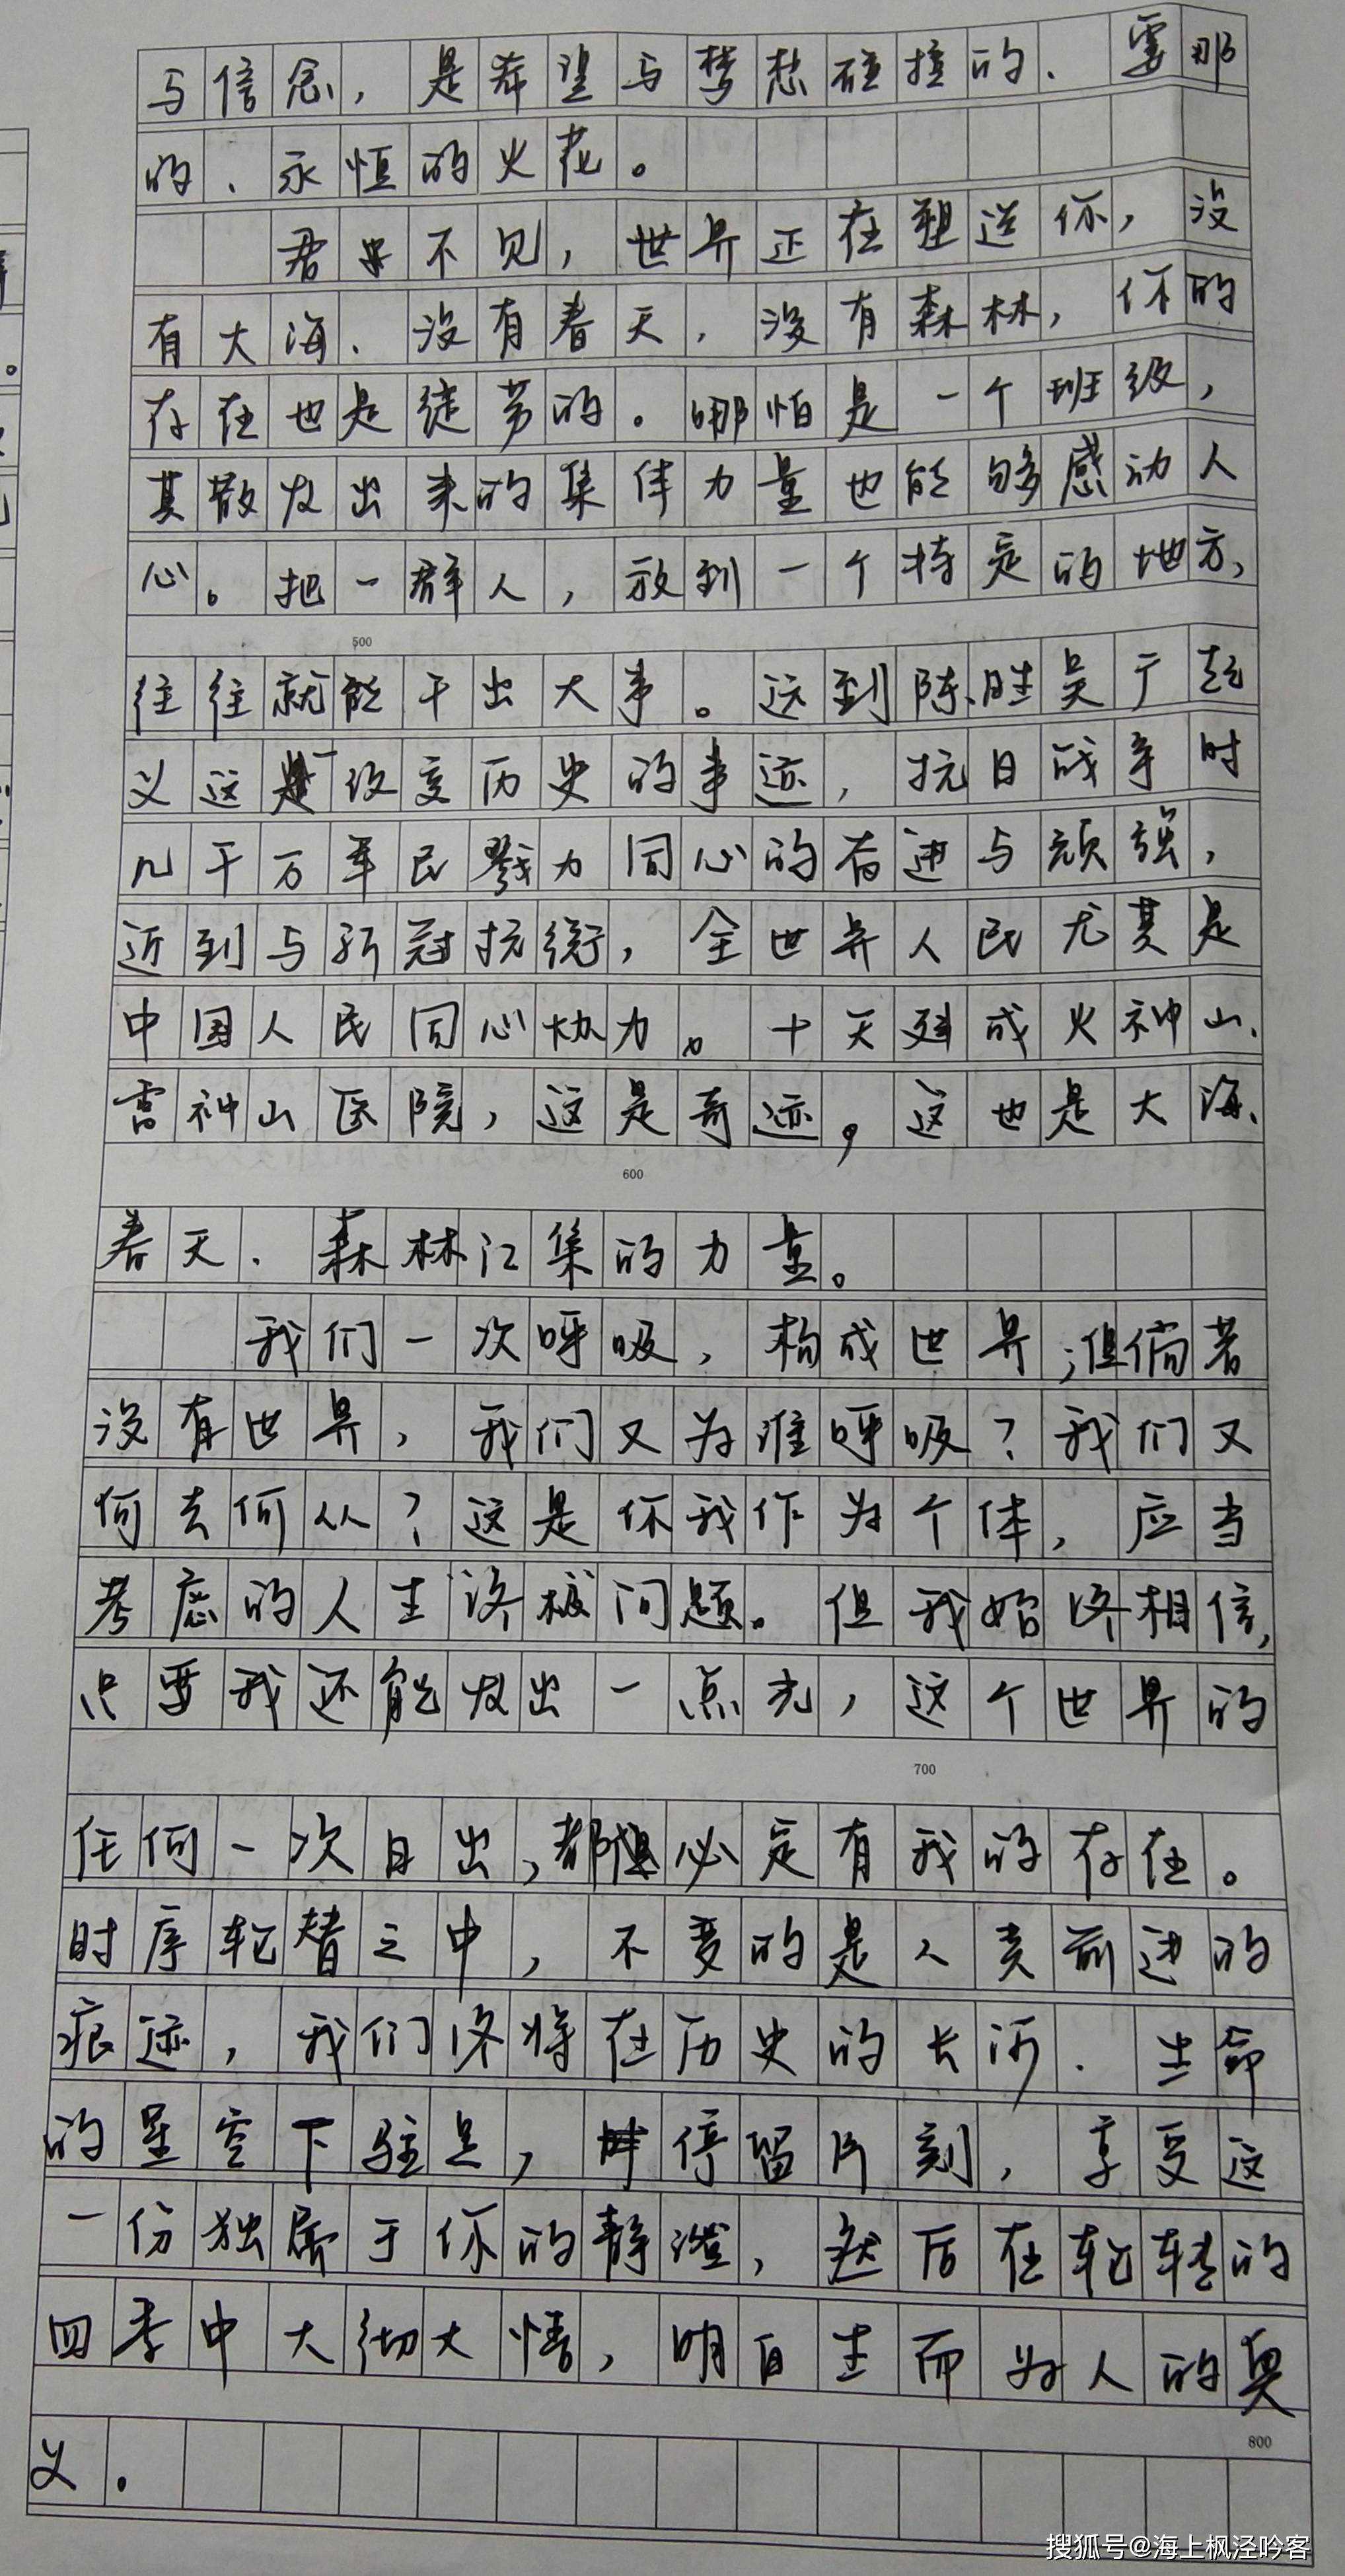 与信念，是希望与梦想碰撞的、霎那
的、永恒的火花。
君不见，世界正在塑造你，没
有大海、没有春天，没有森林，你的
存在也是徒劳的。哪怕是一个班级，
其散发出来的集体力量也能够感动人
心。把一群人，放到一个特定的地方，
500
往往就能干出大事。远到陈胜吴广起
义这一改变历史的事迹，抗日战争时
几千万军民戮力同心的奋进与顽强，
近到与新冠抗衡，全世界人民尤其是
中国人民同心协力。十天建成火神山、
雷神山医院，这是奇迹，这也是大海、
600
春天、森林汇集的力量。
我们一次呼吸，构成世界；但倘若
没有世界，我们又为谁呼吸？我们又
何去何从？这是你我作为个体，应当
考虑的人生终极问题。但我始终相信，
只要我还能发出一点光，这个世界的
700
任何一次日出，都必定有我的存在。
时序轮替之中，不变的是人类前进的
痕迹，我们终将在历史的长河、生命
的星空下驻足，停留片刻，享受这
一份独属于你的静谧，然后在轮转的
四季中大彻大悟，明白生而为人的奥
800
义。
搜狐号@海上枫泾吟客